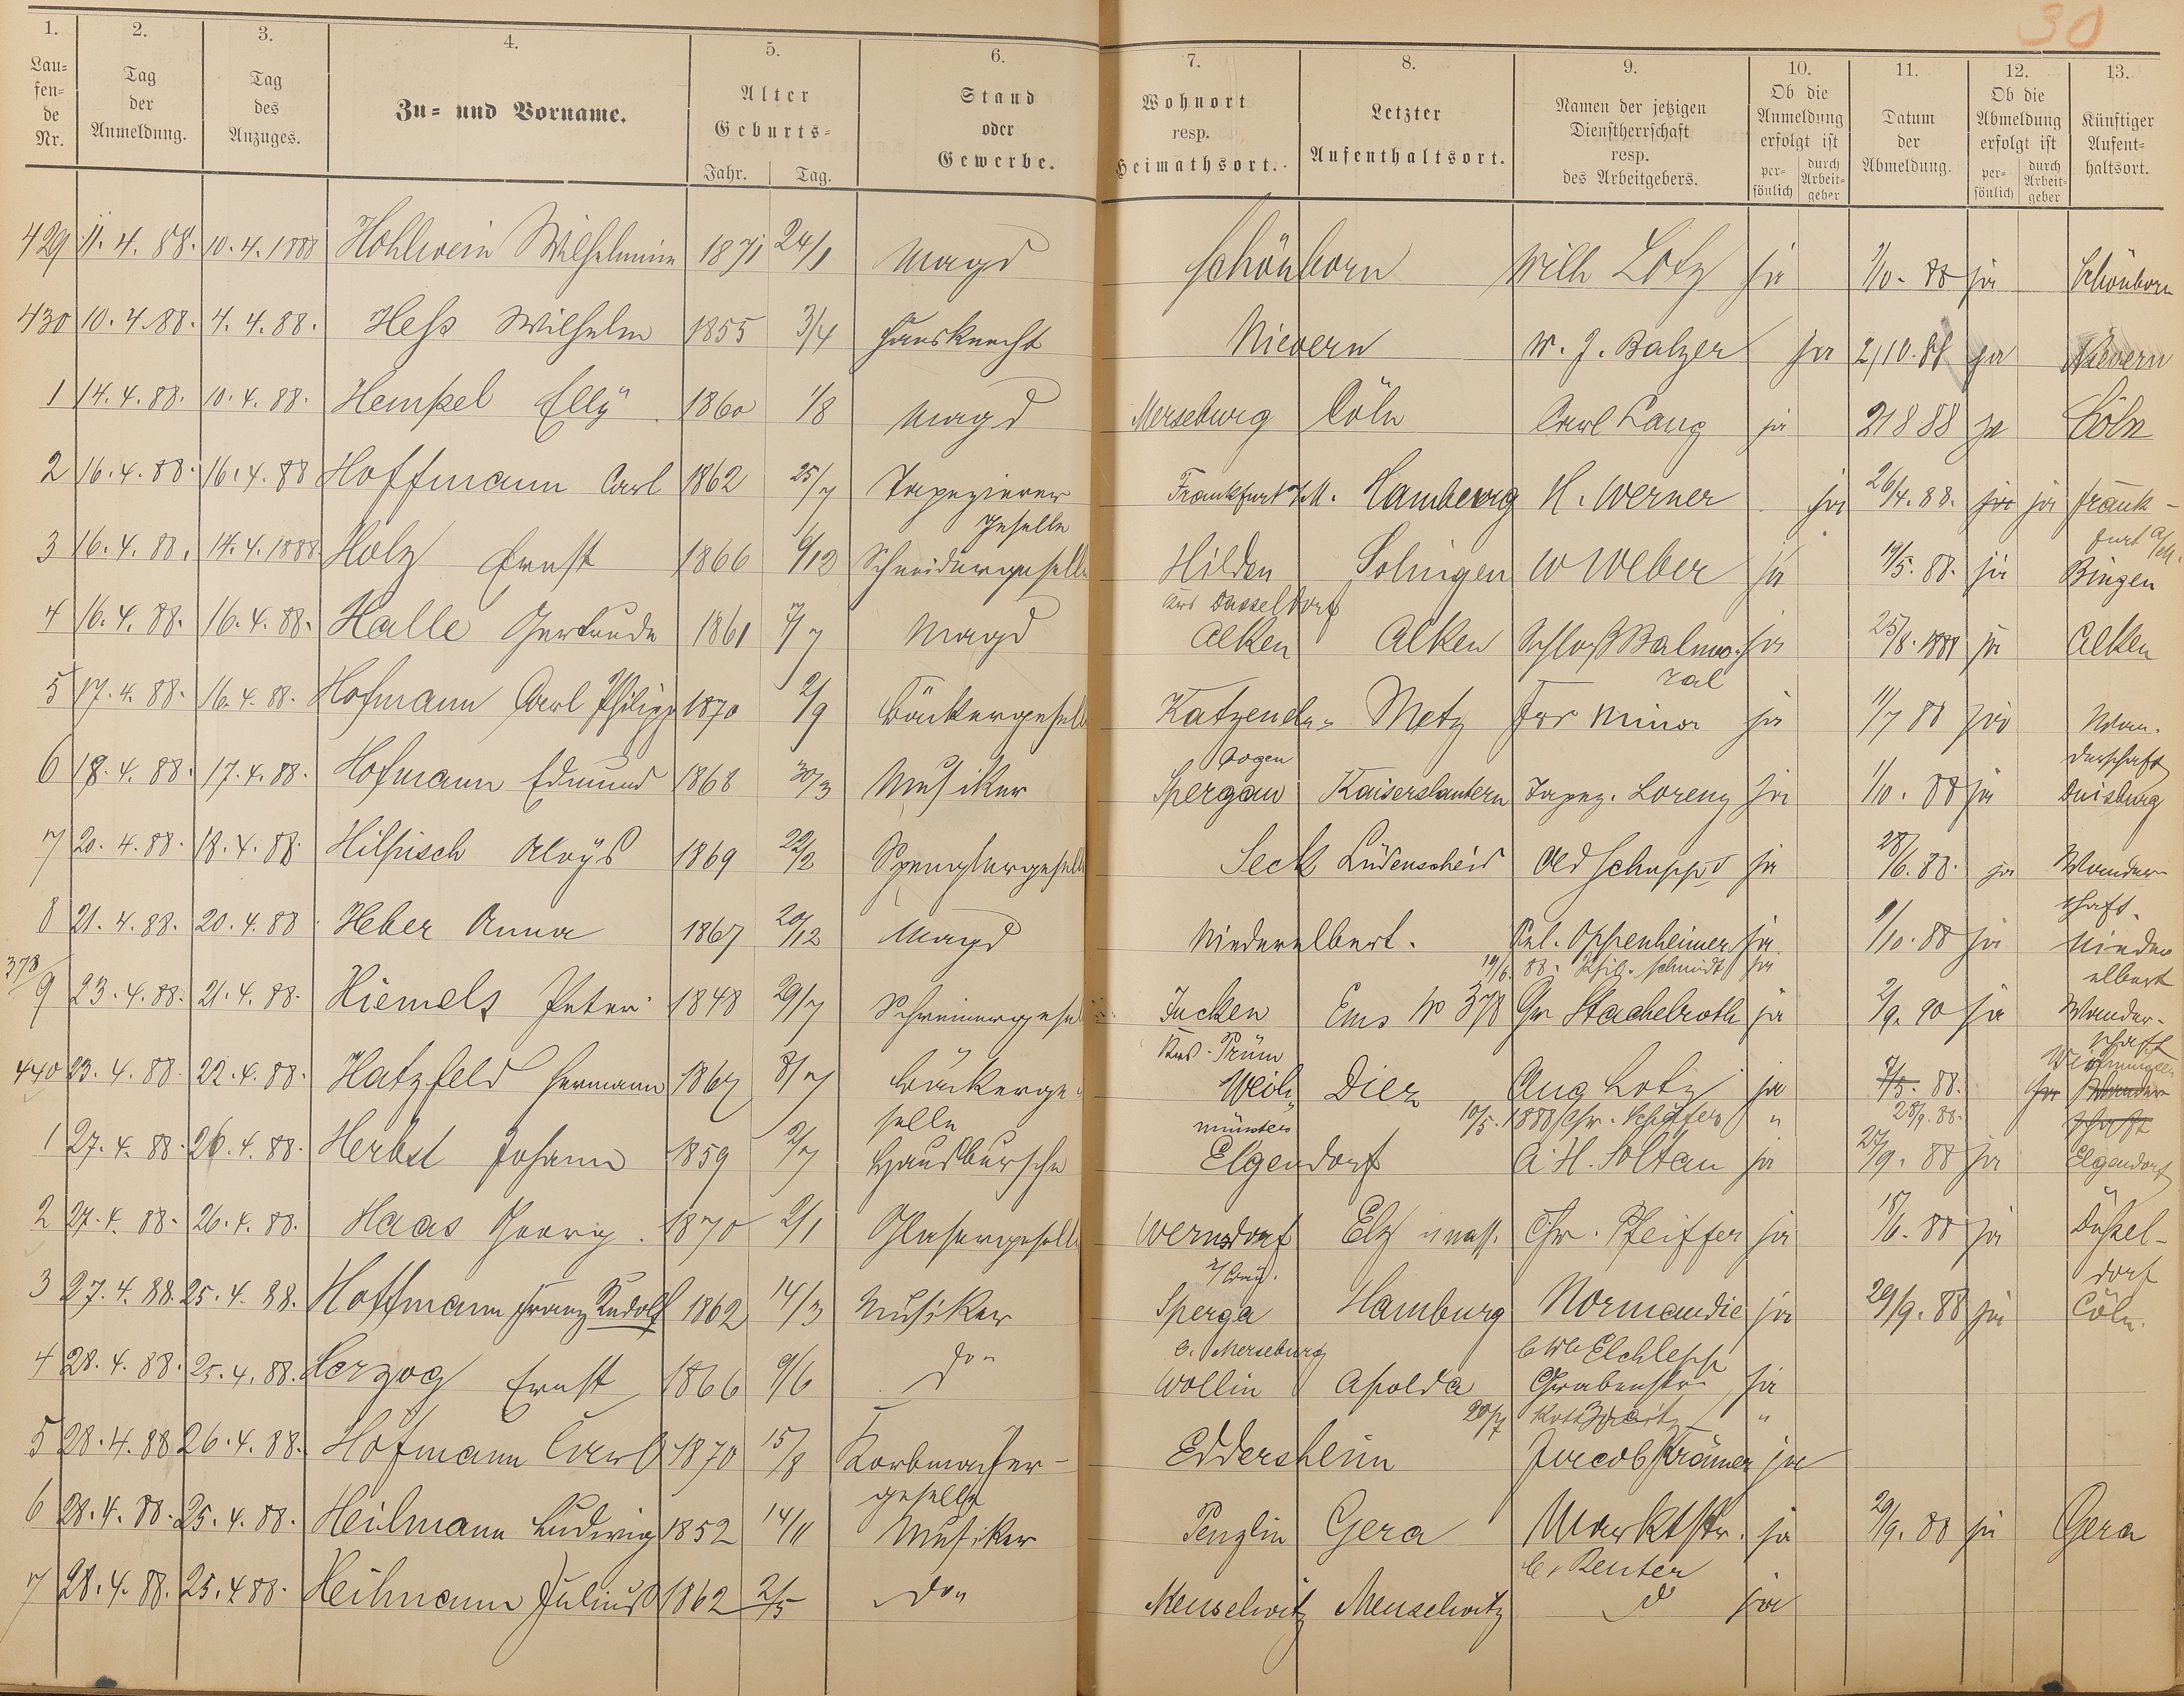 30
1. 2. 3. 4. 5. 6. 7. 8. 9. 10. 11. 12. 13.
Lau=fen=de Nr. Tag der Anmeldung. Tag des Anzuges. Zu= und Vorname. Alter Geburts= Jahr. Tag. Stand oder Gewerbe. Wohnort resp. Heimathsort. Letzter Aufenthaltsort. Namen der jetzigen Dienstherrschaft resp. des Arbeitgebers. Ob die Anmeldung erfolgt ist per=sönlich durch Arbeit=geber Datum der Abmeldung. Ob die Abmeldung erfolgt ist per=sönlich durch Arbeit=geber Künftiger Aufent=haltsort.
429 11. 4. 88. 10. 4. 1888 Hohlwein Wilhelmine 1871 24/1 Magd Schönborn Wilh Lotz ja 1/10. 88 ja Schönborn
430 10. 4. 88. 4. 4. 88. Heß Wilhelm 1855 3/4 Hausknecht Nievern W. J. Balzer ja 2/10. 88 ja Nievern
1 14. 4. 88. 10. 4. 88. Henkel Elly 1860 1/8 Magd Merseburg Cöln Carl Lang ja 21 8 88 ja Cöln
2 16. 4. 88. 16. 4. 88 Hoffmann Carl 1862 25/7 Tapezierer Frankfurt a/M. Hamburg H. Werner ja 26/4. 88. ja ja Frank-
geselle furt a/M.
3 16. 4. 88. 14. 4. 1888 Holz Ernst 1866 6/12 Schneidergeselle Hilden Solingen W Weber ja 19/5. 88. ja Bingen
Krs Düsseldorf
4 16. 4. 88. 16. 4. 88. Halle Gertrude 1861 7/7 Magd Alken Alken Schloß Balmo- ja 25/8. 1888 ja Alken
ral
5 17. 4. 88. 16. 4. 88. Hofmann Carl Philipp 1870 2/9 Bäckergeselle Katzeneln- Metz Frz Minor ja 11/7 88 ja Wan-
bogen derschaft
6 18. 4. 88. 17. 4. 88. Hofmann Edmund 1868 30/3 Musiker Spergau Kaiserslautern Tapez. Lorenz ja 1/10. 88 ja Duisburg
7 20. 4. 88. 18. 4. 88. Hilpisch Aloys 1869 22/2 Spenglergeselle Seck Lüdenscheid Ad Schupp ja 28/6. 88. ja Wander-
schaft.
8 21. 4. 88. 20. 4. 88. Heber Anna 1867 20/12 Magd Niederelbert. Oppenheimer ja 1/10. 88 ja Nieder
88. Schmidt ja elbert
378/
9 23. 4. 88. 21. 4. 88. Hiemels Peter 1848 29/7 Schreinergesel Jucken Ems No 378 Gr Stachelroth ja 2/9. 90 ja Wander-
Krs. Prüm schaft
440 23. 4. 88. 22. 4. 88. Hatzfeld Hermann 1867 8/7 Bäckerge- Weil- Diez Aug Lotz ja 9/5. 88. ja Wander-
selle münster 10/5. 1888 Chr. Schäffer " 28/9. 88. schaft
1 27. 4. 88. 26. 4. 88. Herbst Johann 1859 2/7 Hausbursche Elgendorf A. H. Soltau ja 27/9. 88 ja Elgendorf
2 27. 4. 88. 26. 4. 88. Haas Georg 1870 2/1 Glasergeselle Wernsdorf Elz Chr. Pfeiffer ja 18/6. 88 ja Düßel-
dorf
3 27. 4. 88. 25. 4. 88. Hoffmann Franz Rudolf 1862 14/3 Musiker Sperga Hamburg Normandie ja 29/9. 88 ja Cöln.
b. Merseburg
4 28. 4. 88. 25. 4. 88. Herzog Ernst 1866 9/6 do Wollin Apolda Grabenstr ja
20/7 "
5 28. 4. 88 26. 4. 88. Hofmann Carl 1870 15/8 Korbmacher- Eddersheim Jacob Krämer ja
geselle
6 28. 4. 88. 25. 4. 88. Heilmann Ludwig 1852 14/11 Musiker Penzlin Gera Marktstr. ja 29/9. 88 ja Gera
b. Reuter
7 28. 4. 88. 25. 4 88. Heilmann Julius 1862 2/5 do Meuselwitz Meuselwitz d ja